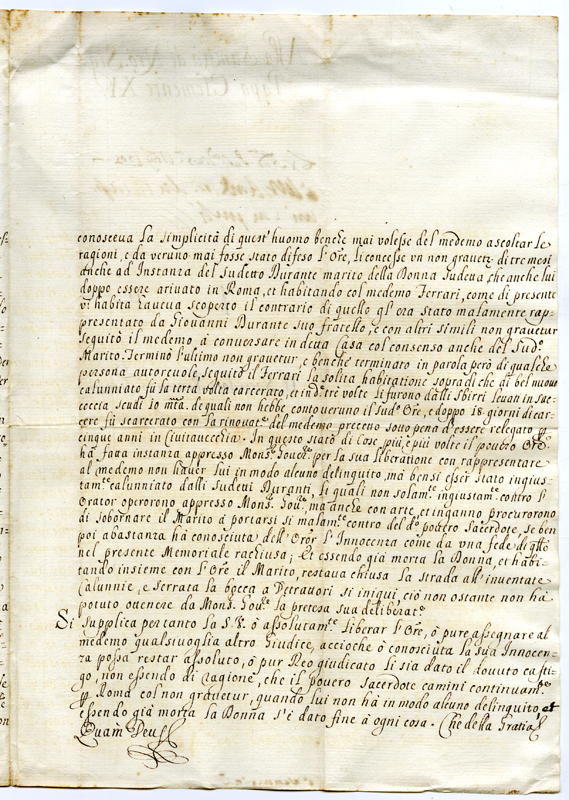 conosceva la simplicità di quest'huomo benche mai volesse del medemo ascoltar le
ragioni, e da veruno mai fosse stato difeso l'Ore, li concesse un non gravetur di tre mesi
anche ad Instanza del sudetto Durante marito della Donna sudetta, che anche lui
doppo essere arivato in Roma, et habitando col medemo Ferrari, come di presente
vi habita haveva scoperto il contrario di quello gl'era stato malamente rap-
presentato da Giovanni Durante suo fratello, e con altri simili non gravetur
seguitò il medemo à conversare in detta Casa col consenso anche del Sud.º
Marito. Terminò l'ultimo non gravetur, e benche terminato in parola però di qualche
persona autorevole, seguitò il Ferrari la solita habitatione sopra di che di bel nuovo
calunniato fù la terza volta carcerato, et in d.e tre volte li furono dalli sbirri levati in sac-
coccia scudi 10 m.ta de quali non hebbe conto veruno il sud.º Ore, e doppo 18 giorni di car-
cere fù scarcerato con la rinovat.e del medemo precetto sotto pena d'essere relegato p
cinque anni in Civitavecchia. In questo stato di Cose, più, e più volte il povero Ore
hà fatta instanza appresso Mons.r Gov.re per la sua liberatione con rappresentare
al medemo non haver lui in modo alcuno delinquito, mà bensi esser stato ingius-
tam.te calunniato dalli sudetti Duranti, li quali non solam.te ingiustam.te contro l'
Orator operorono appresso Mons. Gov.re ma anche con arte, et inganno procurorono
di sobornare il Marito à portarsi si malam.te contro del d.o povero Sacerdote, se ben
poi abastanza hà conosciuta dell'Oror l'Innocenza come da una fede di q̃llo
nel presente Memoriale rachiusa; Et essendo già morta la Donna, et habi-
tando insieme con l'Ore il Marito, restava chiusa la strada all'inventate
Calunnie, e serrata la bocca a Detrattori si iniqui, ciò non ostante non hà
potuto ottenere da Mons.r Gov.re la pretesa sua deliberat.e
Si supplica per tanto la S. V. ò assolutam.te liberar l'Ore, ò pure assegnare al
medemo qualsivoglia altro Giudice, accioche ò conosciuta la sua Innocen-
za possa restar assoluto, ò pur Reo giudicato li sia dato il dovuto casti-
go, non essendo di ragione, che il povero Sacerdote camini continuam.te
p Roma col non gravetur, quando lui non hà in modo alcuno delinquito, et
essendo già morta la Donna s'è dato fine à ogni cosa. Che della Gratia
Quam Deus